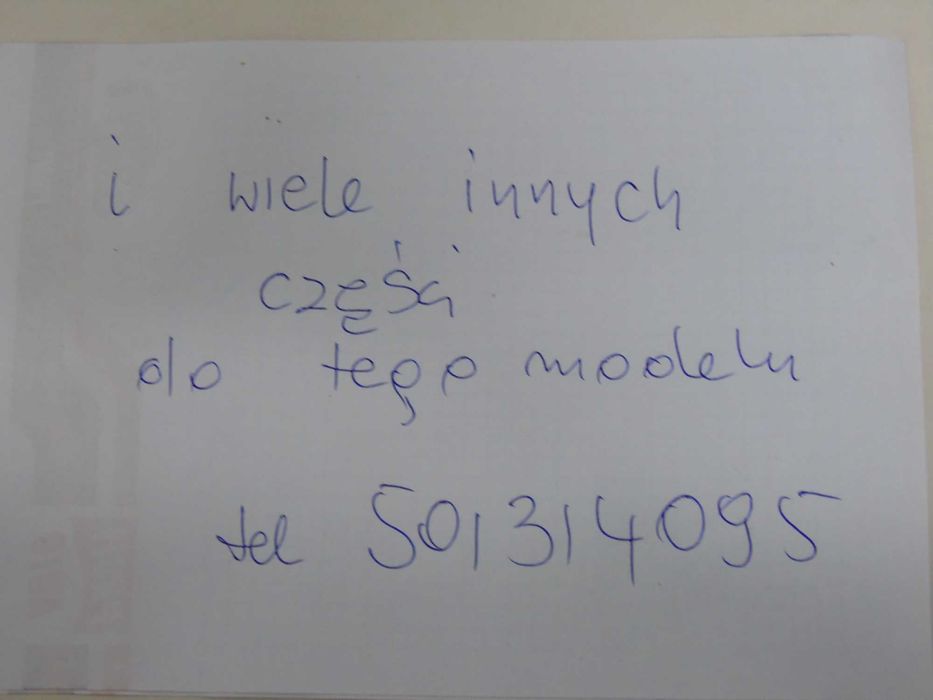 i wiele innych
części
do tego modelu
tel 501314095